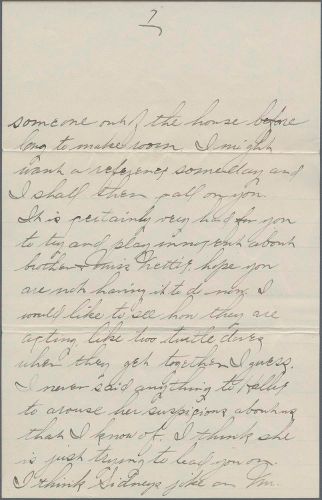 7
someone out of the house before
long to make room. I might
want a reference someday and
I shall then call on you.
It is certainly very hard for you
to try and play innocent about
brother & Miss hope you
are not having it to do now. I
would like to see how they are
acting, like two turtle doves
when they get together I guess.
I never said anything to
to arouse her suspicions about
that I know of. I think she
is just trying to lead you on.
I think Sidneys joke on Mr.